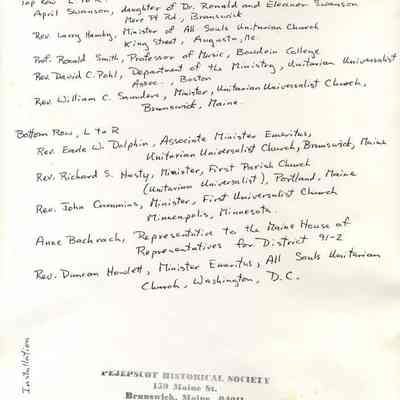 Top Row L to R:
April Swanson, daughter of Dr. Ronald and Eleanor Swanson
Mere Pt Rd., Brunswick
Rev. Larry Hamby, Minister of All Souls Unitarian Church
King Street, Augusta, Me.
Prof. Ronald Smith, Professor of Music, Bowdoin College
Rev. David C. Pohl, Department of the Ministry, Unitarian Universalist
Assoc., Boston
Rev. William C. Saunders, Minister, Unitarian Universalist Church,
Brunswick, Maine.
Bottom Row, L to R
Rev. Earle W. Dolphin, Associate Minister Emeritus,
Unitarian Universalist Church, Brunswick, Maine
Rev. Richard S. Hasty, Minister, First Parish Church
(Unitarian Universalist), Portland, Maine
Rev. John Cummins, Minister, First Universalist Church
Minneapolis, Minnesota.
Anne Bachrach, Representative to the Maine House of
Representatives for District 91-2
Rev. Duncan Howlett, Minister Emeritus, All Souls Unitarian
Church, Washington, D.C.
Installation
PEJEPSCOT HISTORICAL SOCIETY
159 Maine St.
Brunswick, Maine 04011